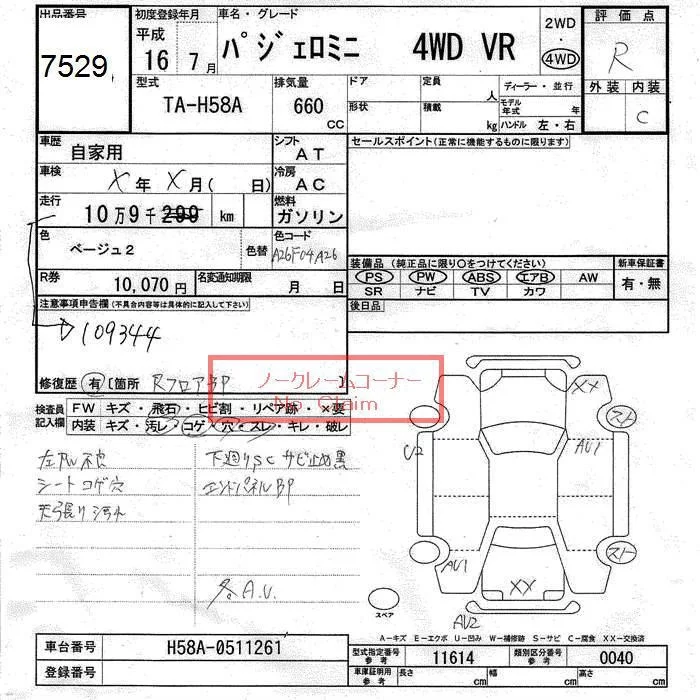 出品番号
7529
初度登録年月
平成
16 7月
車名・グレード
パジェロミニ 4WD VR
2WD
・
4WD
評価点
R
外装 内装
C
型式
TA-H58A
排気量
660
cc
ドア
形状
定員
人
積載
kg
ディーラー・並行
モデル
年式 年
ハンドル 左・右
車歴
自家用
シフト
AT
車検
X 年 X 月( 日)
冷房
AC
走行
10万9千200 km
燃料
ガソリン
色
ベージュ2
色替
色コード
A26F04A26
R券
10,070 円
名変通知期限
月 日
セールスポイント(正常に機能するものに限ります)
装備品(純正品に限り○をつけてください)
PS PW ABS エアB AW
SR ナビ TV カワ
新車保証書
有・無
後日品
注意事項申告欄(不具合内容等は具体的に記入して下さい)
109344
修復歴 有 [箇所 RフロアBP ]
ノークレームコーナー
No Claim
検査員
記入欄
FW キズ・飛石・ヒビ割・リペア跡 ×要
内装 キズ・汚レ・コゲ・穴・スレ・キレ・破レ
シートコゲ穴
天張り汚れ
下廻りSC サビ止め黒
エンドパネルBP
各A.U.
XX
U2
AU1
AU1
XX
AU2
スペア
A-キズ E-エクボ U-凹み W-補修跡 S-サビ C-腐食 XX-交換済
車台番号
H58A-0511261
登録番号
型式指定番号
参考
11614
類別区分番号
参考
0040
車庫証明
参考
長さ cm
幅 cm
高さ cm